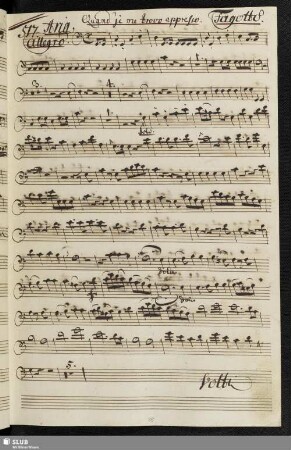 47 Aria Quando si ou trovo appresso. Fagotto
Allegro
3. 1.
1.
Solo
Solo
Solo
5.
Volti
SLUB
Wir führen Wissen.